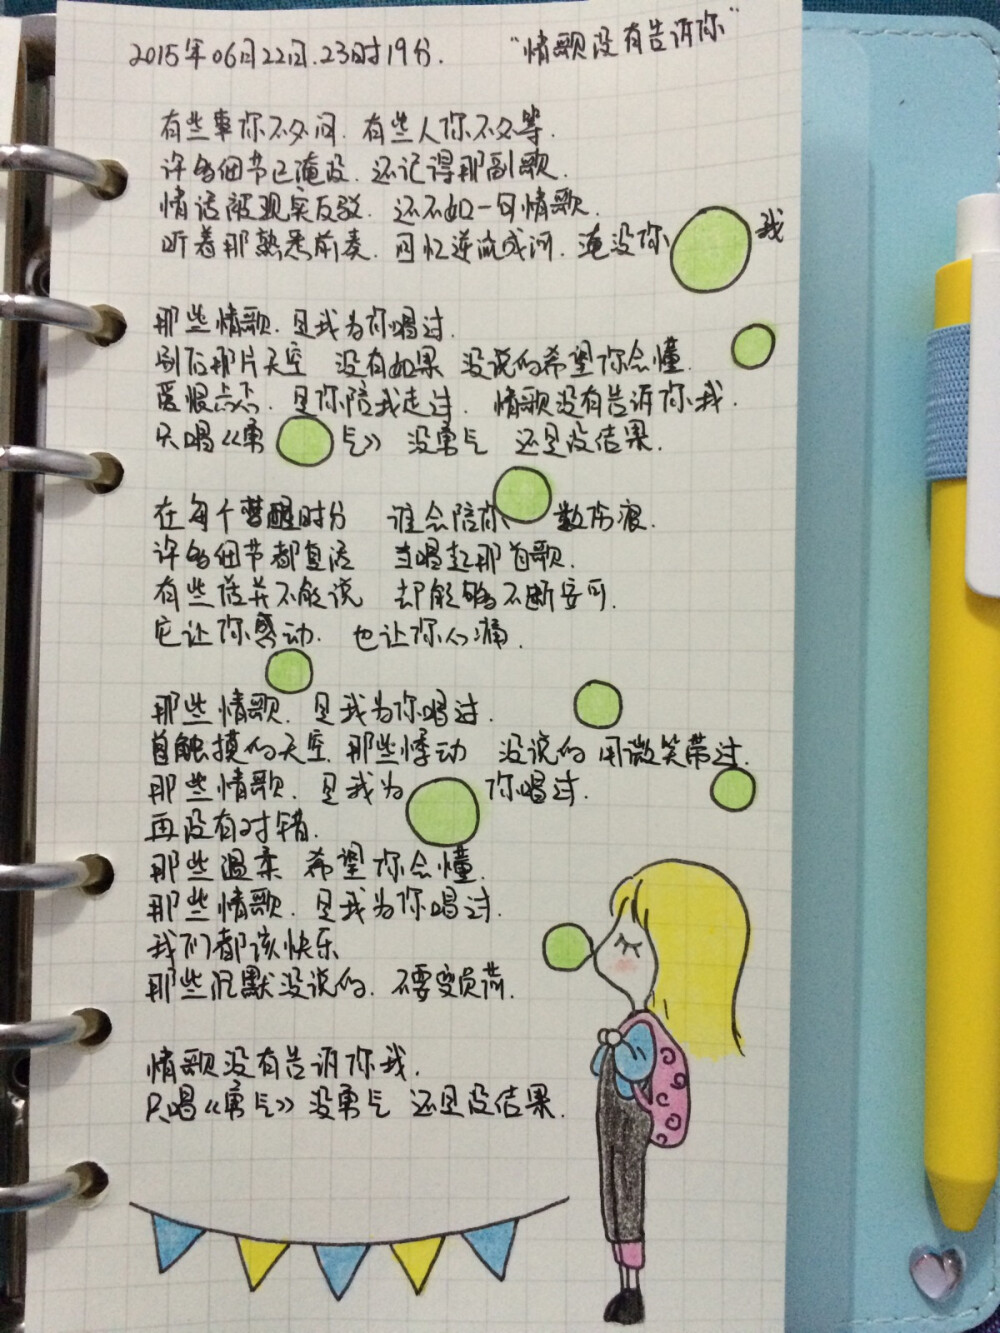 2015年06月22日.23时19分. "情歌没有告诉你"
有些事你不必问. 有些人你不必等.
许多细节已淹没. 还记得那副歌.
情话被现实反驳. 还不如一句情歌.
听着那熟悉前奏. 回忆逆流成河. 淹没你 我
那些情歌. 是我为你唱过.
剧后那片天空 没有如果 没说的希望你会懂.
爱恨点点. 是你陪我走过. 情歌没有告诉你我.
只唱《勇 气》 没勇气 还是没结果.
在每个梦醒时分 谁会陪你 数伤痕.
许多细节都复活 当唱起那首歌.
有些话并不能说 却能够不断安可.
它让你感动. 也让你心痛.
那些情歌. 是我为你唱过.
首触摸的天空. 那些悸动 没说的 用微笑带过.
那些情歌. 是我为 你唱过.
再没有对错.
那些温柔 希望你会懂.
那些情歌. 是我为你唱过.
我们都该快乐
那些沉默没说的. 不要变负荷.
情歌没有告诉你我.
只唱《勇气》没勇气 还是没结果.